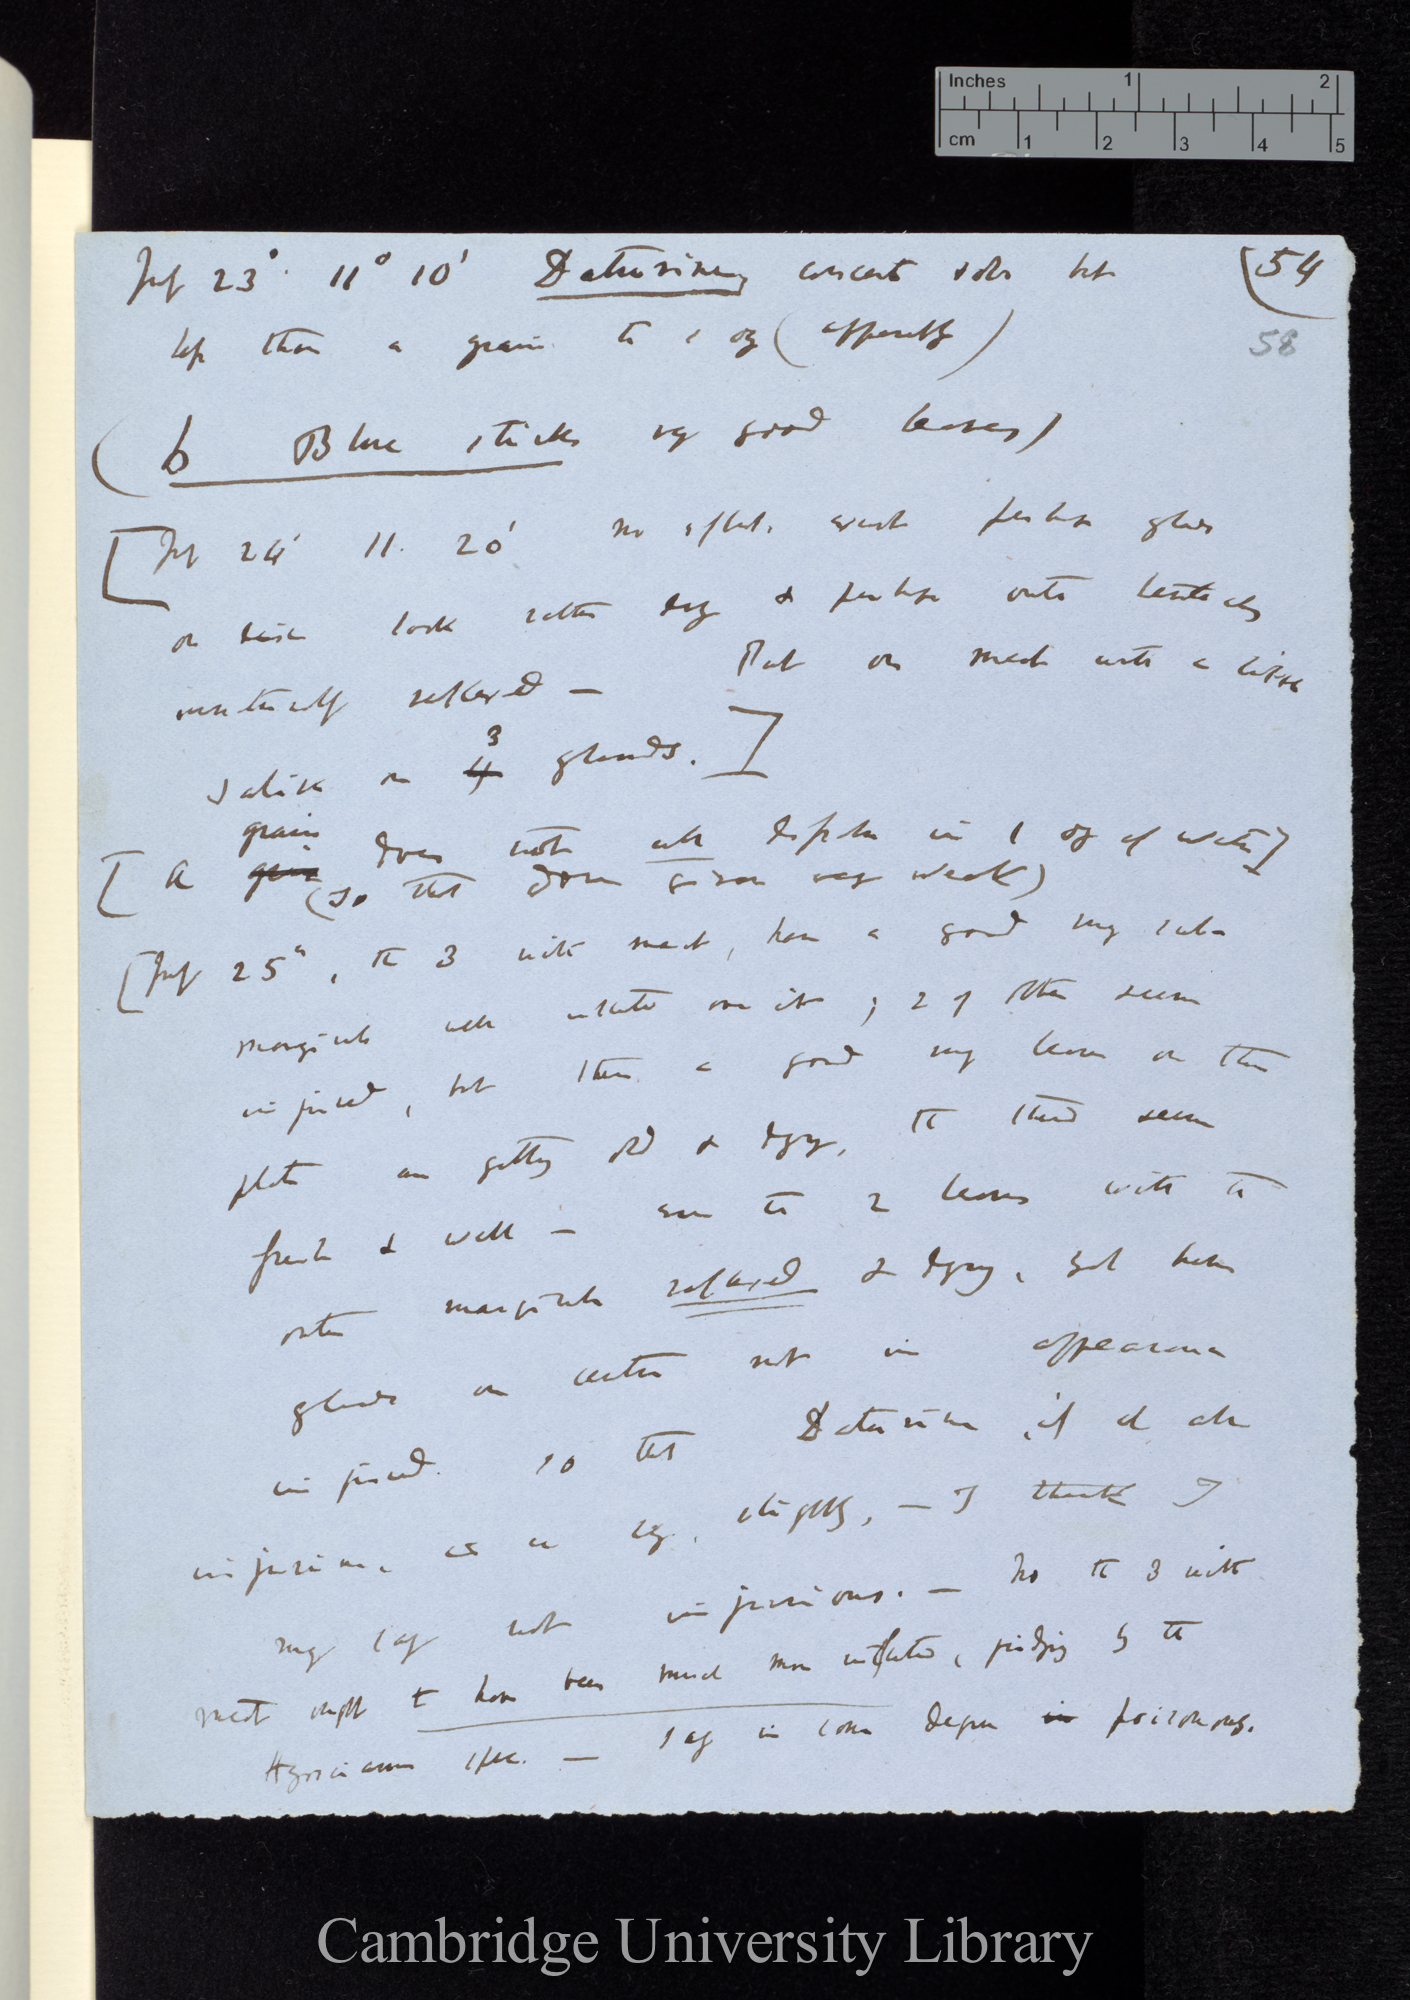 Inches 1 2
cm 1 2 3 4 5
July 23° 11° 10' Daturine, concent soln but (54
less than a grain to 1 oz (apparently)
58
(b Blue sticks very good leaves)
[July 24' 11. 20' no effect. except perhaps glands
on disc look rather dry & perhaps outer tentacles
unnaturally reflexed — Put on meat with a little
saliva on 3 glands. ]
[ A grain does not all dissolve in 1 oz of water]
(so that dose given very weak)
[July 25", the 3 with meat, have a good many sub-
marginals well inflected over it ; 2 of them seem
injured, but then a good many leaves on the
plate are getting old & dying, the third seem
fresh & well — even the 2 leaves with the
outer marginals reflexed & dying, yet have
glands on centre not in appearance
injured. so that Daturine if at all
injurious, is so very slightly, — I think I
may say not injurious. — No the 3 with
meat ought to have been much more inflected, judging by the
Hyoscyamus spec. — say in some degree poisonous.
Cambridge University Library